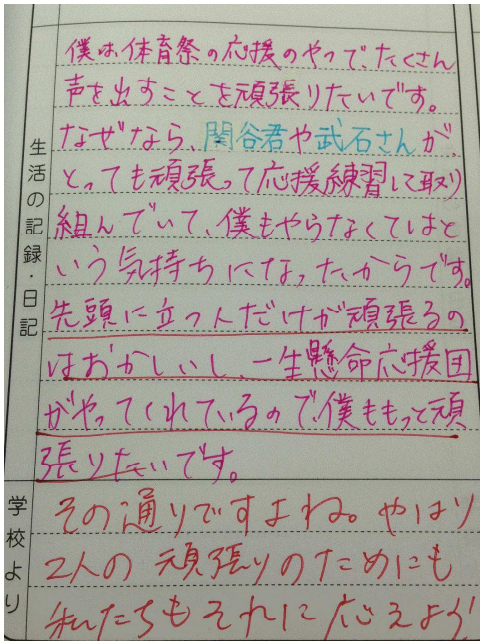 生活の記録・日記
僕は、体育祭の応援のやつで、たくさん
声を出すことを頑張りたいです。
なぜなら、関谷君や武石さんが、
とっても頑張って応援練習して取り
組んでいて、僕もやらなくてはと
いう気持ちになったからです。
先頭に立つ人だけが頑張るの
はおかしいし、一生懸命応援団
がやってくれているので、僕ももっと頑
張りたいです。
学校より
その通りですよね。やはり
2人の頑張りのためにも
私たちもそれに応えよう